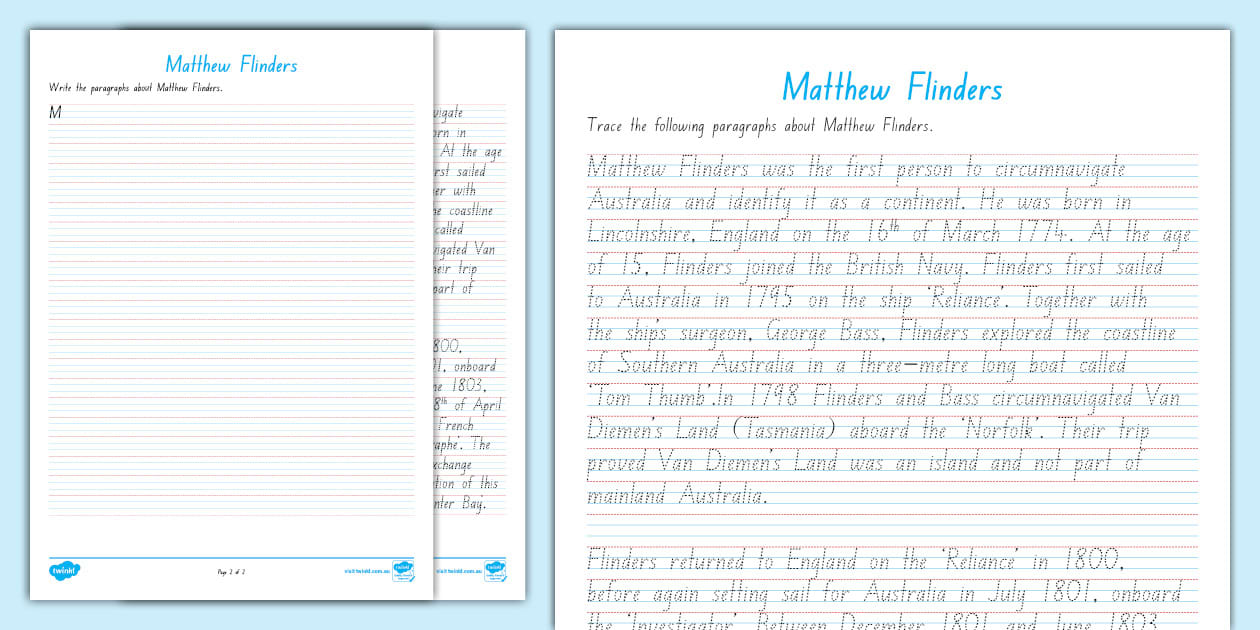 Matthew Flinders
Write the paragraphs about Matthew Flinders.
M
twinkl
Page 2 of 2
visit twinkl.com.au
vigate
orn in
At the age
rst sailed
er with
he coastline
called
vigated Van
heir trip
part of
800,
01, onboard
ne 1803,
8th of April
French
aphe'. The
xchange
tion of this
nter Bay'.
visit twinkl.com.au
Matthew Flinders
Trace the following paragraphs about Matthew Flinders.
Matthew Flinders was the first person to circumnavigate
Australia and identify it as a continent. He was born in
Lincolnshire, England on the 16th of March 1774. At the age
of 15, Flinders joined the British Navy. Flinders first sailed
to Australia in 1795 on the ship 'Reliance'. Together with
the ship's surgeon, George Bass, Flinders explored the coastline
of Southern Australia in a three-metre long boat called
'Tom Thumb'.In 1798 Flinders and Bass circumnavigated Van
Diemen's Land (Tasmania) aboard the 'Norfolk'. Their trip
proved Van Diemen's Land was an island and not part of
mainland Australia.
Flinders returned to England on the 'Reliance' in 1800,
before again selling sail for Australia in July 1801, onboard
the 'Investigator'. Between December 1801 and June 1803,